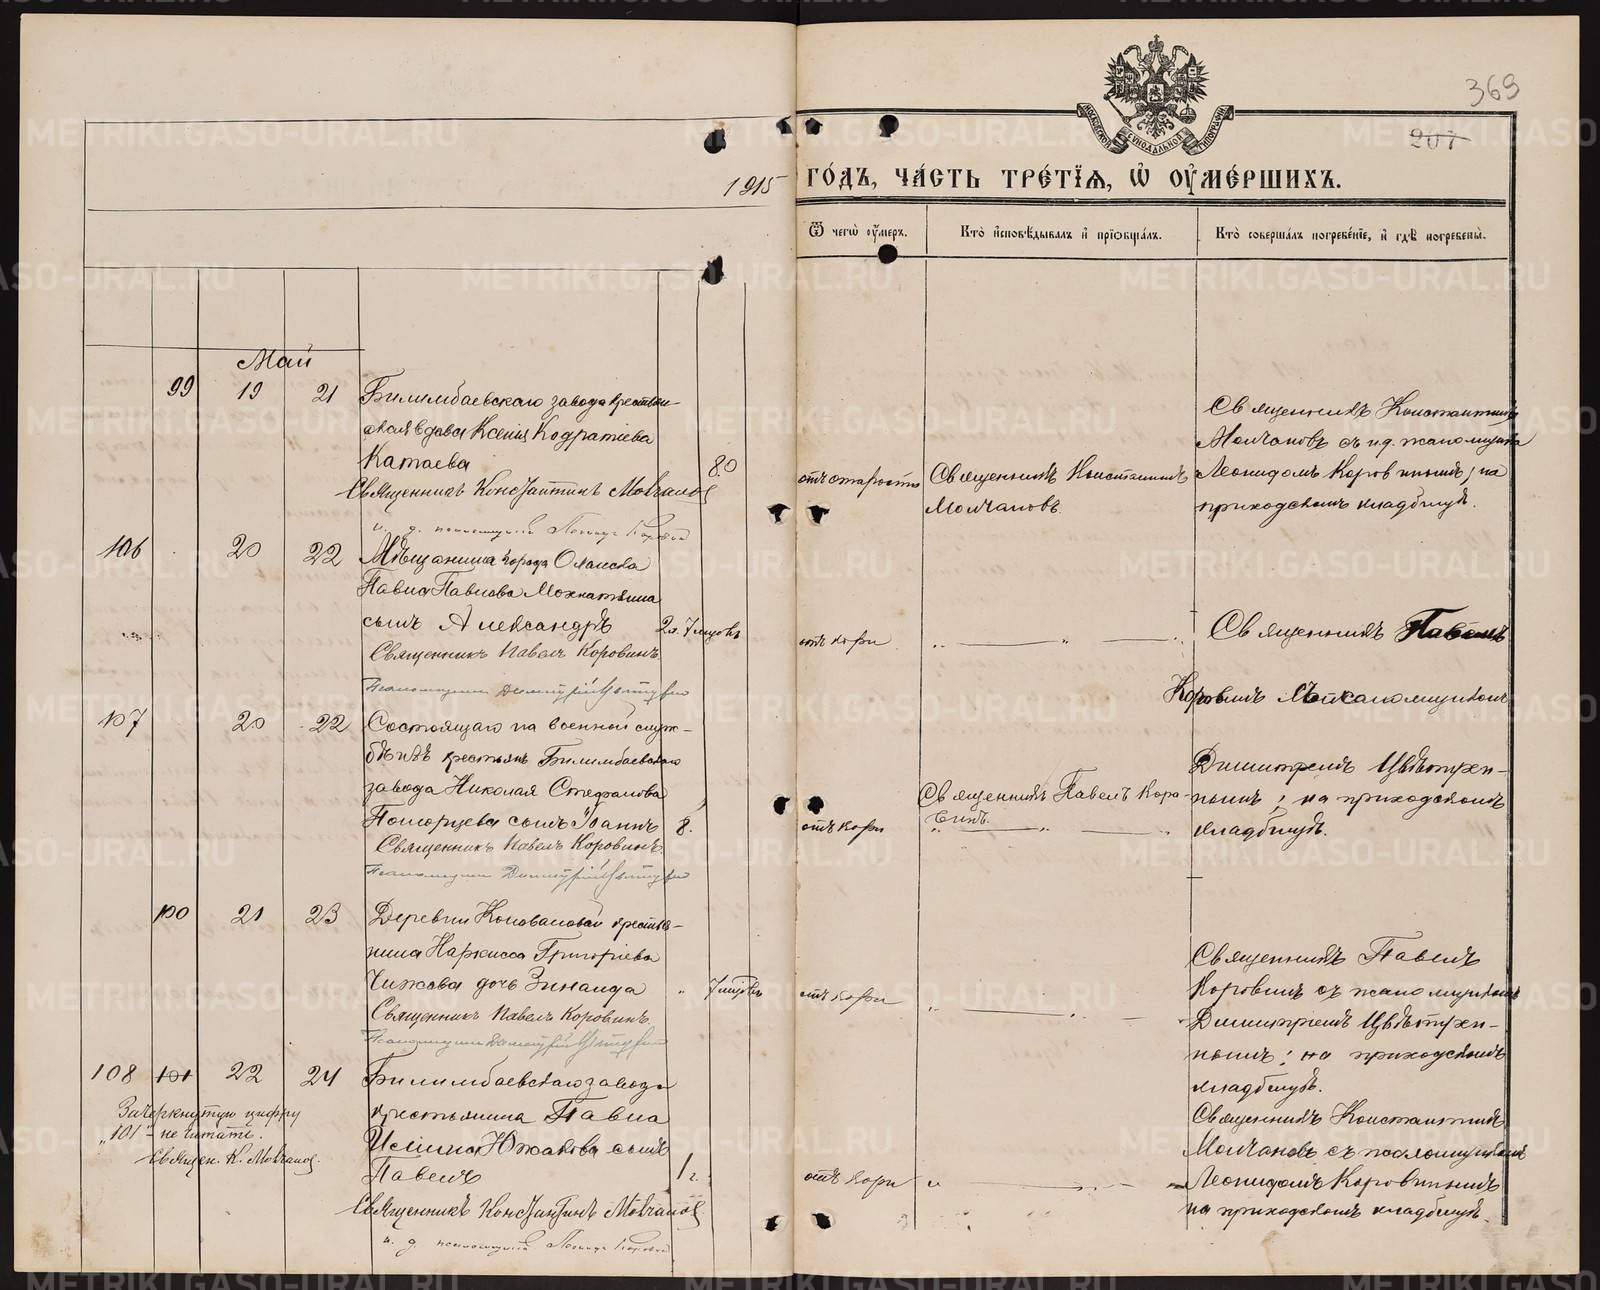 369
207
1915
ГОДЪ, ЧАСТЬ ТРЕТІѦ, Ѡ ОУМЕРШИХЪ.
МОСКОВСКОЙ СѴНОДАЛЬНОЙ ТИПОГРАФІИ
Ѿ чегѡ оумеръ.
Кто исповѣдывалъ и пріобщалъ.
Кто совершалъ погребеніе, и гдѣ погребены.
Май
99 19 21
Билимбаевскаго завода крестьян-
ская вдова Ксенія Кодратіева
Катаева 80
Священникъ Константинъ Молчановъ
и. д. псаломщика Леонидъ Коровинъ
отъ старости
Священникъ Константинъ
Молчановъ.
Священникъ Константинъ
Молчановъ съ и.д. псаломщика
Леонидомъ Коровинымъ; на
приходскомъ кладбищѣ.
106 20 22
Мѣщанина города Оханска
Павла Павлова
сынъ Александръ 2 г. 7 мцовъ
Священникъ Павелъ Коровинъ.
Псаломщикъ Димитрій
отъ кори
Священникъ Павелъ
Коровинъ съ псаломщикомъ
Димитріемъ
на приходскомъ
кладбищѣ.
107 20 22
Состоящаго на военной служ-
бѣ изъ крестьянъ Билимбаевскаго
завода Николая Стефанова
Поморцева сынъ Іоаннъ 8.
Священникъ Павелъ Коровинъ.
Псаломщикъ Димитрій
отъ кори
Священникъ Павелъ Коро-
винъ.
100 21 23
Деревни Коноваловой крестья-
нина Наркисса Григоріева
Чижова дочь Зинаида 7 мцовъ
Священникъ Павелъ Коровинъ.
Псаломщикъ Димитрій
отъ кори
Священникъ Павелъ
Коровинъ съ псаломщикомъ
Димитріемъ
на приходскомъ
кладбищѣ.
108 101 22 24
Зачеркнутую цифру
"101" не читать.
Священ. К. Молчановъ.
Билимбаевскаго завода
крестьянина Павла
Южакова сынъ
Павелъ 1 г.
Священникъ Константинъ Молчановъ
и. д. псаломщика Леонидъ Коровинъ
отъ кори
Священникъ Константинъ
Молчановъ съ псаломщикомъ
Леонидомъ Коровинымъ
на приходскомъ кладбищѣ.
METRIKI.GASO-URAL.RU